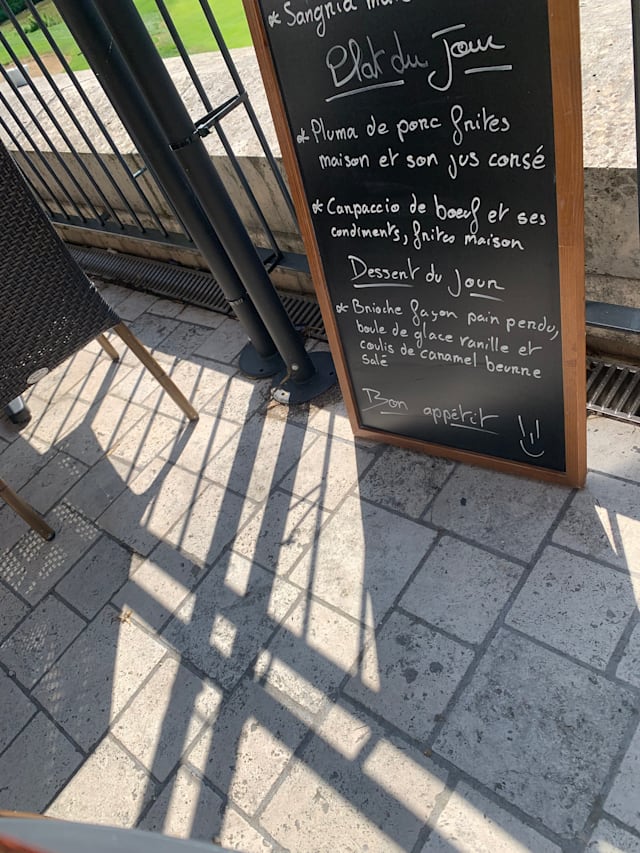 * Sangria
Plat du Jour
* Pluma de porc frites
maison et son jus corsé
* Carpaccio de boeuf et ses
condiments, frites maison
Dessert du Jour
* Brioche façon pain perdu,
boule de glace vanille et
coulis de caramel beurre
salé
Bon appétit